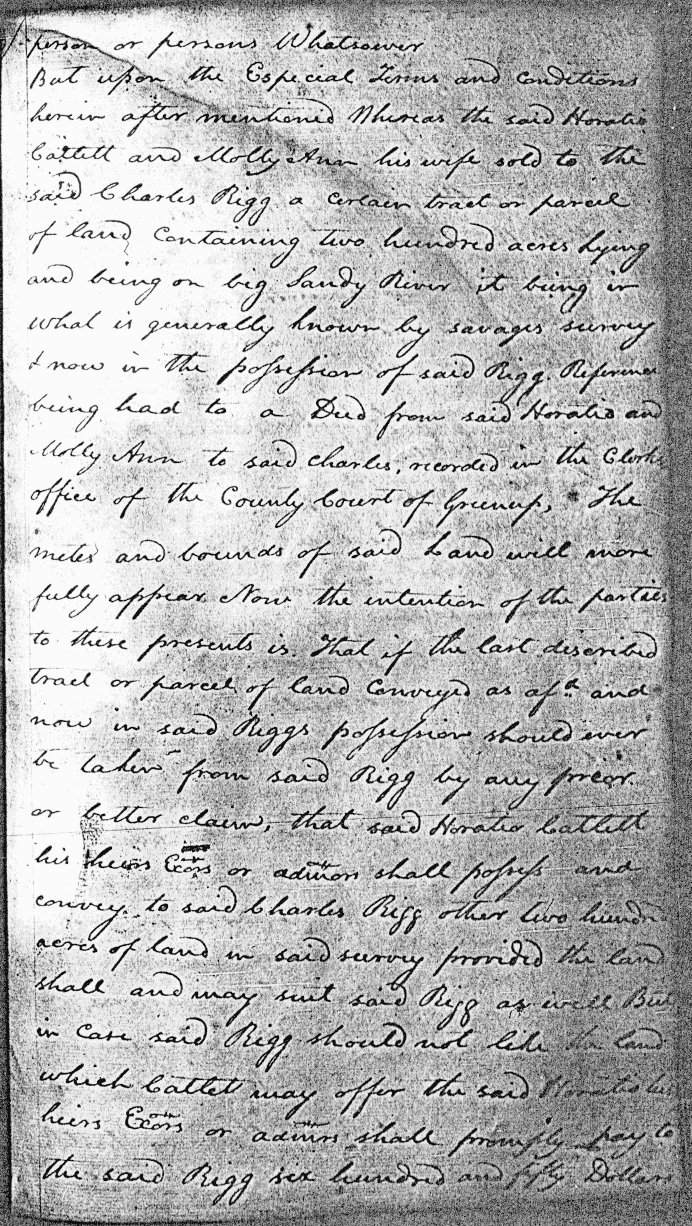 person or persons Whatsoever
But upon the Especial Terms and conditions
herein after mentioned Whereas the said Horatio
Catlett and Molly Ann his wife sold to the
said Charles Rigg a certain tract or parcel
of land containing two hundred acres Lying
and being on big Sandy River it being in
what is generally known by savages survey
& now in the possession of said Rigg. Reference
being had to a Deed from said Horatio and
Molly Ann to said charles, recorded in the Clerks
office of the County Court of Greenup, The
metes and bounds of said Land will more
fully appear Now the intention of the parties
to these presents is. That if the last described
tract or parcel of land Conveyed as afd. and
now in said Riggs possession should ever
be taken from said Rigg by any preor
or better claim, that said Horatio Catlett
his heirs Exors or admors shall possess and
convey to said Charles Rigg other two hundr
acres of land in said survey provided the land
shall and may suit said Rigg as well But
in case said Rigg should not like the land
which Catlett may offer the said Horatio his
heirs Exors or admrs shall promptly pay to
the said Rigg six hundred and fifty Dollars